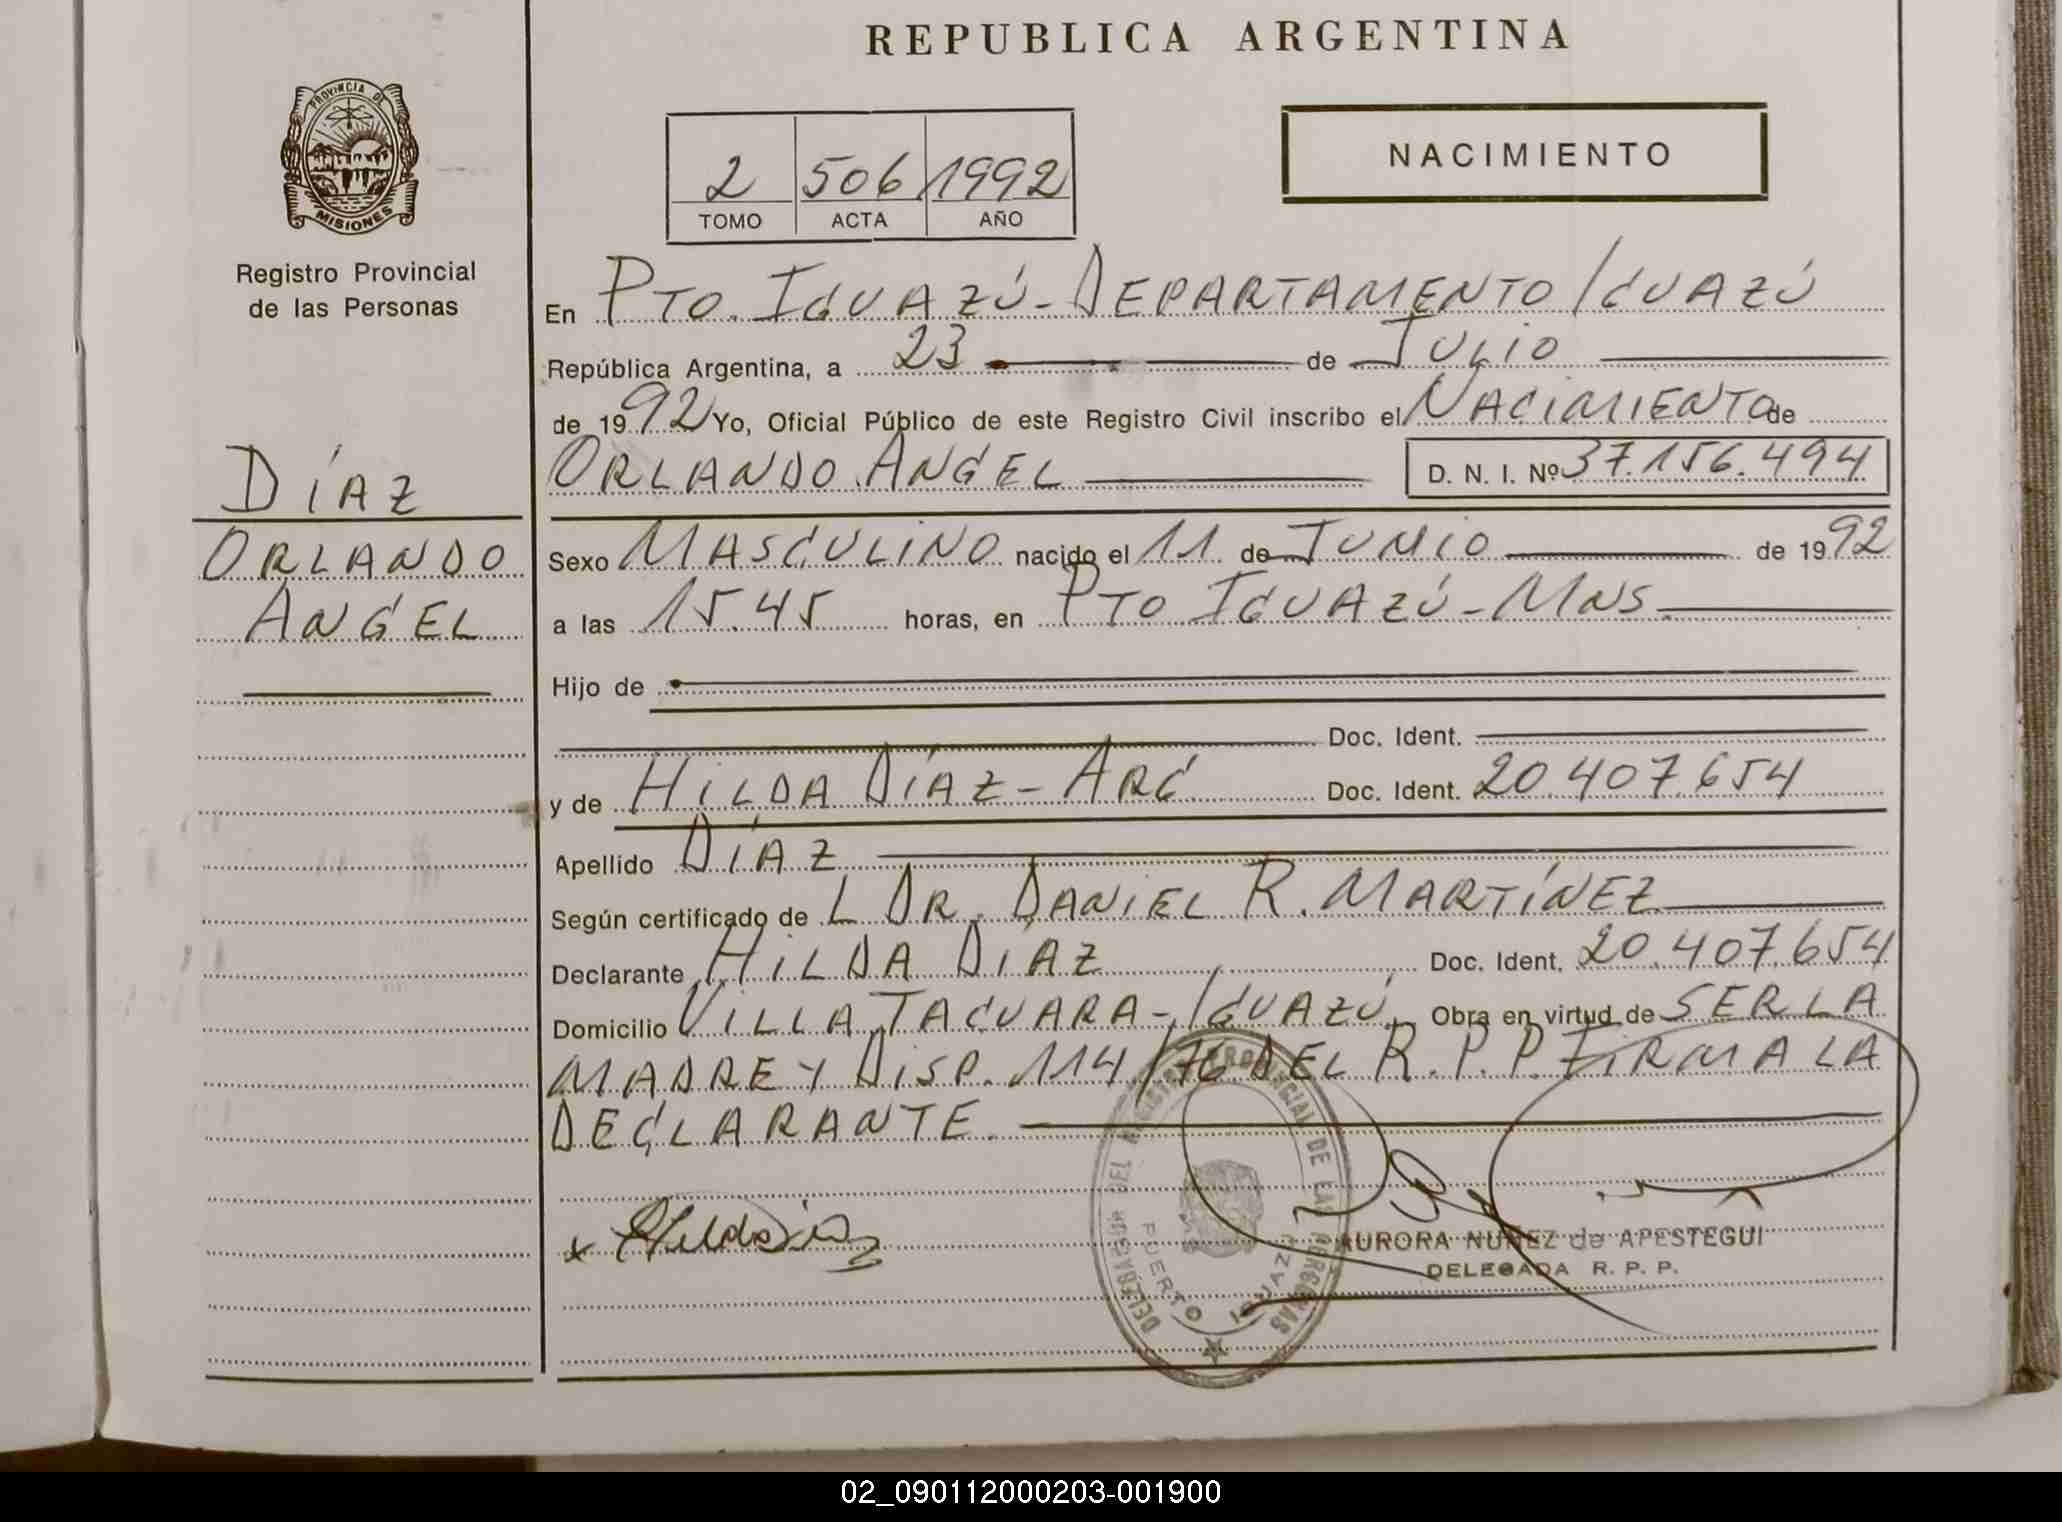 REPUBLICA ARGENTINA
PROVINCIA DE
MISIONES
Registro Provincial
de las Personas
2 506 1992
TOMO ACTA AÑO
NACIMIENTO
En PTO. IGUAZÚ - DEPARTAMENTO IGUAZÚ
República Argentina, a 23 de JULIO
de 1992 Yo, Oficial Público de este Registro Civil inscribo el NACIMIENTO de
ORLANDO ANGEL D. N. I. Nº 37.156.494
DÍAZ
ORLANDO
ANGEL
Sexo MASCULINO nacido el 11 de JUNIO de 1992
a las 15.45 horas, en PTO IGUAZÚ - MNS.
Hijo de
Doc. Ident.
y de HILDA DÍAZ - ARG Doc. Ident. 20.407.654
Apellido DÍAZ
Según certificado de L DR. DANIEL R. MARTÍNEZ
Declarante HILDA DIAZ Doc. Ident. 20.407.654
Domicilio VILLA TACUARA - IGUAZÚ. Obra en virtud de SER LA
MADRE Y DISP. 114/76 DEL R. P. P. FIRMA LA
DECLARANTE.
x Hilda Diaz
DELEGACION DEL REGISTRO PROVINCIAL DE LAS PERSONAS
PUERTO IGUAZU
AURORA NUÑEZ de APESTEGUI
DELEGADA R. P. P.
02_090112000203-001900